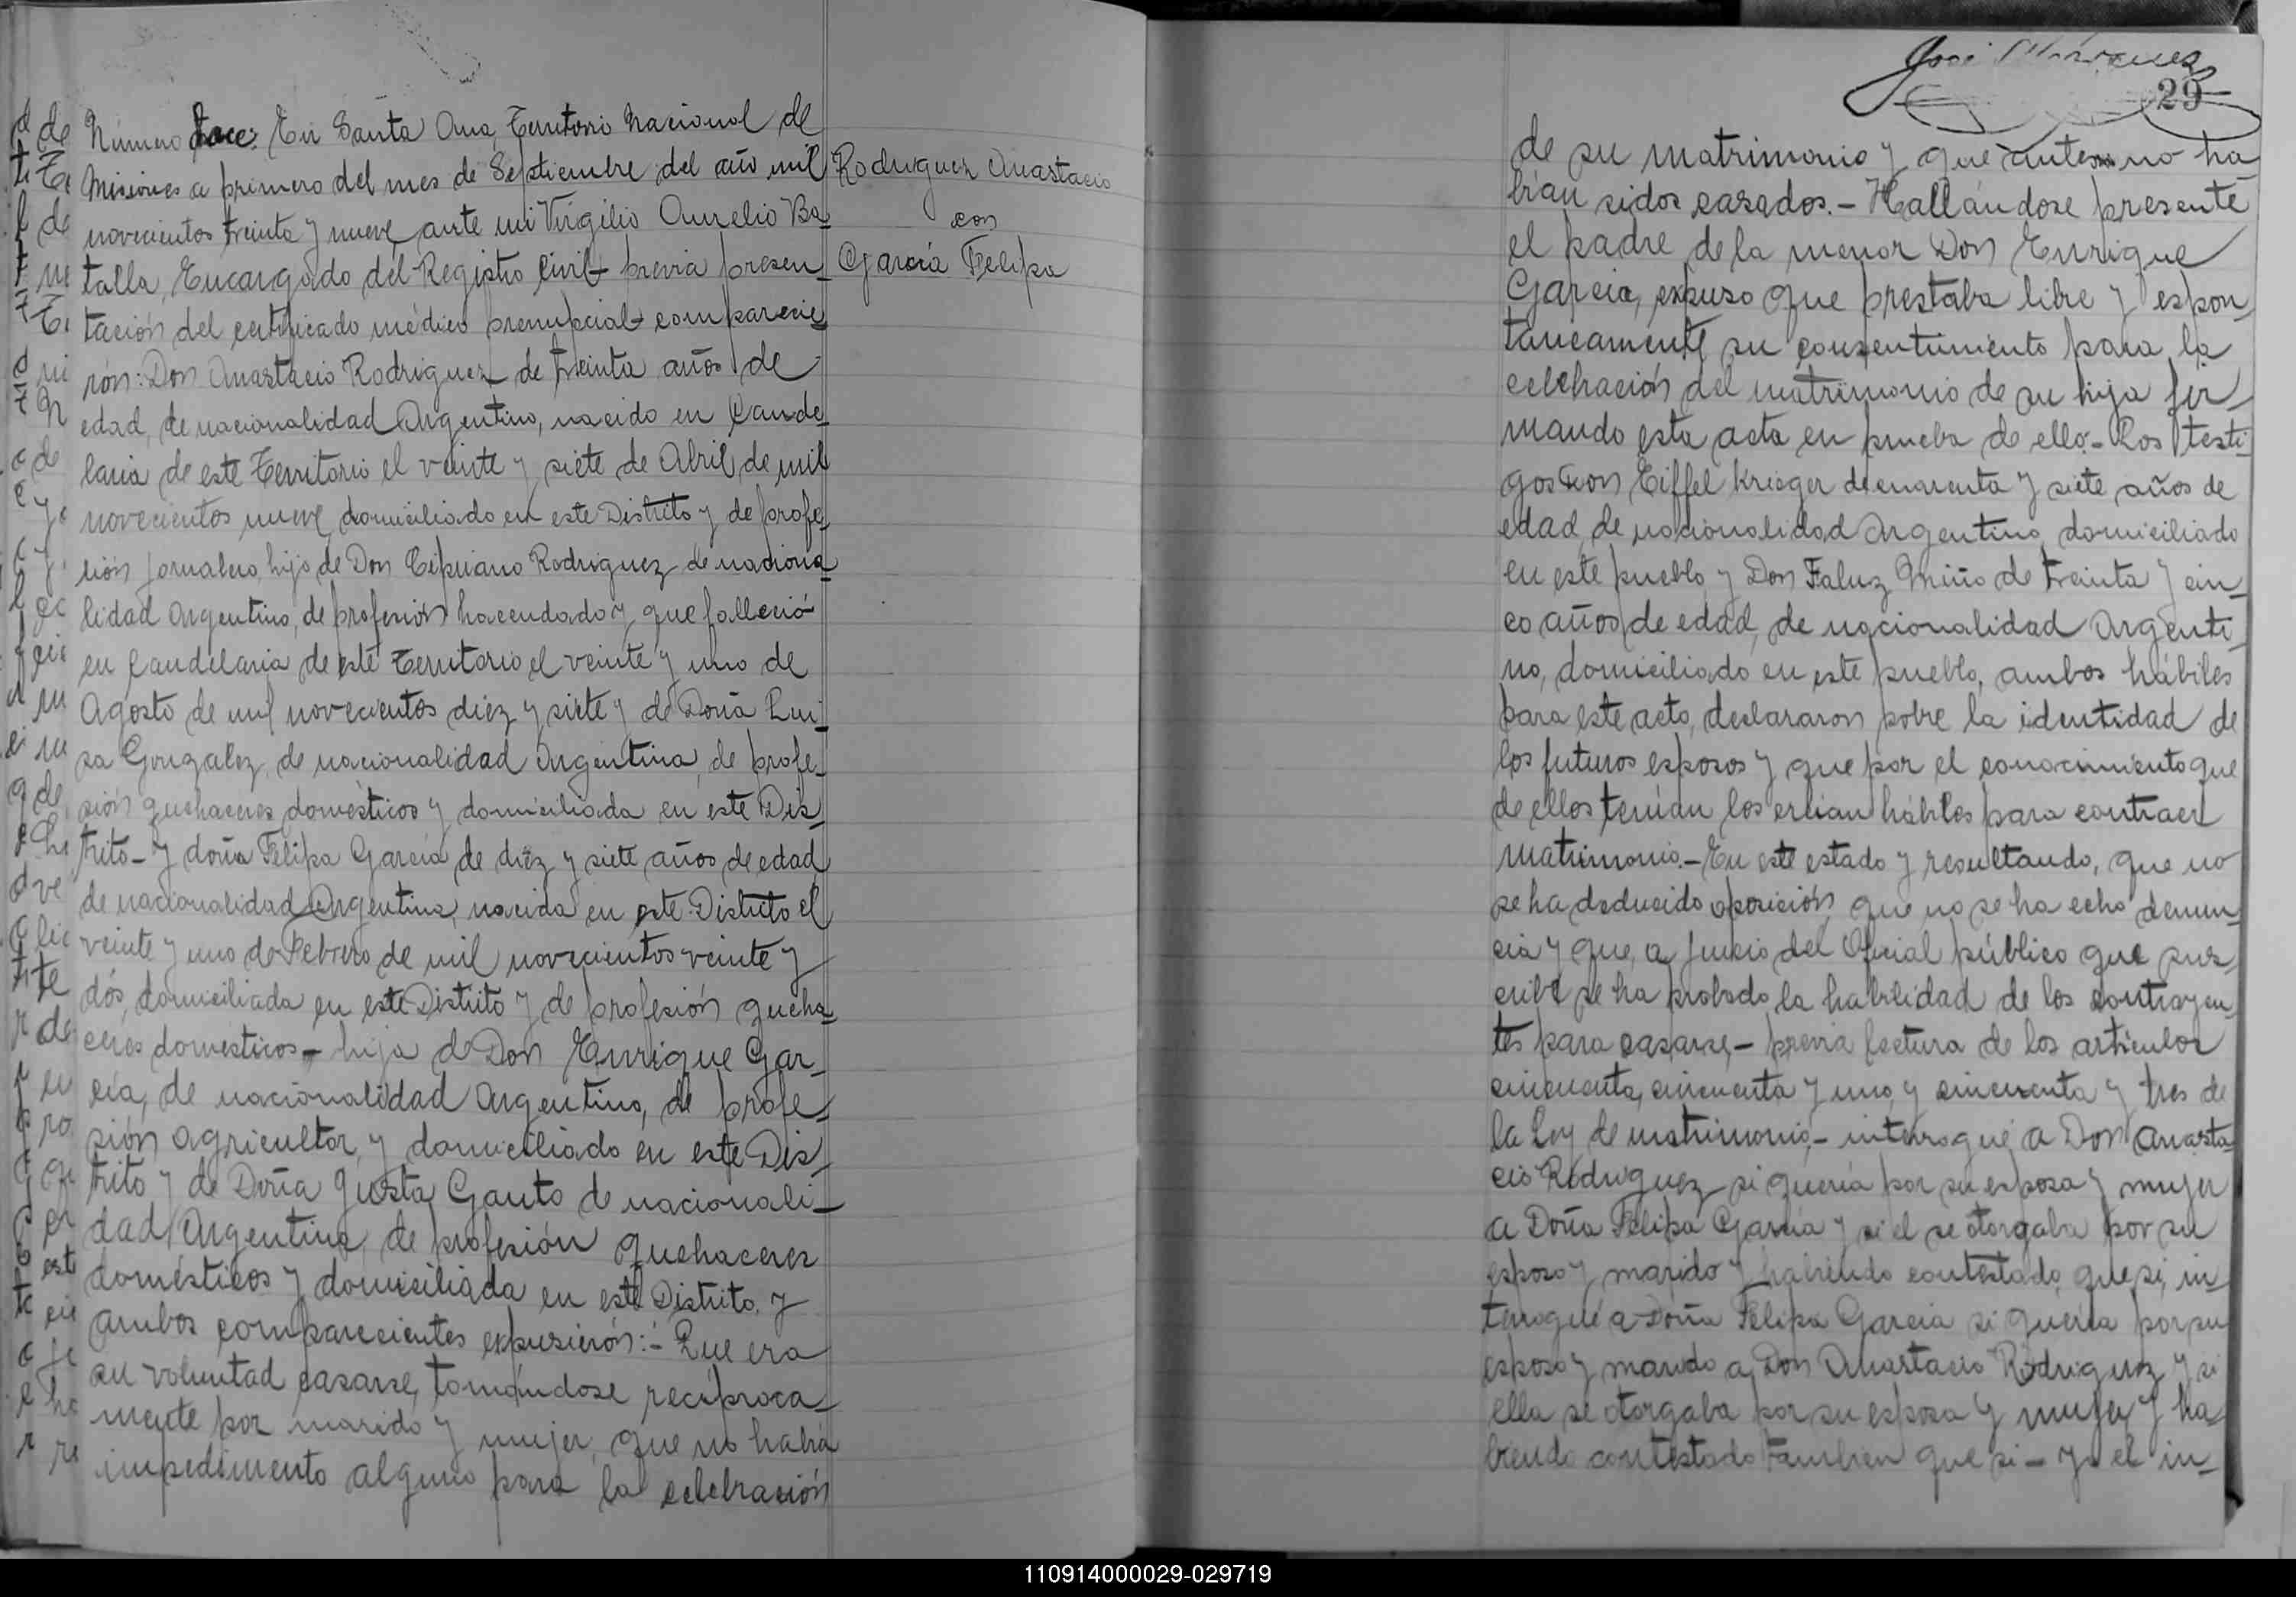 Número doce: En Santa Ana, Territorio Nacional de
Misiones a primero del mes de Septiembre del año mil
novecientos treinta y nueve, ante mi Virgilio Aurelio Ba
talla, Encargado del Registro Civil previa presen
tación del certificado médico prenupcial comparecie
rón: Don Anastacio Rodriguez de treinta años de
edad, de nacionalidad Argentino, nacido en Cande
laria de este Territorio el veinte y siete de Abril de mil
novecientos nueve, domiciliado en este Distrito y de profe
sión jornalero, hijo de Don Cipriano Rodriguez de naciona
lidad Argentino, de profesión hacendado y que falleció
en Candelaria de este Territorio el veinte y uno de
Agosto de mil novecientos diez y siete y de Doña Lui
sa Gonzalez, de nacionalidad Argentina, de profe_
sión quehaceres domésticos y domiciliada en este Dis_
trito_ y doña Felipa García de diez y siete años de edad,
de nacionalidad Argentina, nacida en este Distrito el
veinte y uno de Febrero de mil novecientos veinte y
dós, domiciliada en este Distrito y de profesión queha_
ceres domésticos_ hija de Don Enrique Gar_
cía, de nacionalidad Argentino, de profe_
sión agricultor, y domiciliado en este Dis_
trito y de Doña Justa Gauto de nacionali_
dad Argentina, de profesión quehaceres
domésticos y domiciliada en este Distrito, y
ambos comparecientes expusierón:- Que era
su voluntad casarse, tomándose recíproca_
mente por marido y mujer, que no había
impedimento alguno para la celebración
Rodriguez Anastacio
con
García Felipa
José Márquez
29
de su matrimonio y que antes no ha
brían sidos casados.- Hallándose presente
el padre de la menor Don Enrique
Garcia, expuso que prestaba libre y espon_
táneamente su consentimiento para la
celebración del matrimonio de su hija fir_
mando esta acta en prueba de ello.- Los testi_
gos Don Eiffel Krieger de cuarenta y siete años de
edad, de nacionalidad Argentino, domiciliado
en este pueblo y Don Faluz Miño de treinta y cin_
co años de edad, de nacionalidad Argenti_
no, domiciliado en este pueblo, ambos hábiles
para este acto, declararon sobre la identidad de
los futuros esposos y que por el conocimiento que
de ellos tenían los creían hábiles para contraer
matrimonio.- En este estado y resultando, que no
se ha deducido oposición, que no se ha echo denun_
cia y que, a juicio del Oficial público que sus_
cribe se ha probado la habilidad de los contrayen_
tes para casarse,- previa lectura de los artículos
cincuenta, cincuenta y uno, y cincuenta y tres de
la Ley de matrimonio,- interrogué a Don Anasta_
cio Rodriguez si quería por su esposa y mujer
a Doña Felipa García y si el se otorgaba por su
esposo y marido y habiendo contestado que si, in_
terrogué a Doña Felipa Garcia si quería por su
esposo y marido a Don Anastacio Rodriguez y si
ella se otorgaba por su esposa y mujer y ha_
biendo contestado tambien que si- yo el in_
110914000029-029719